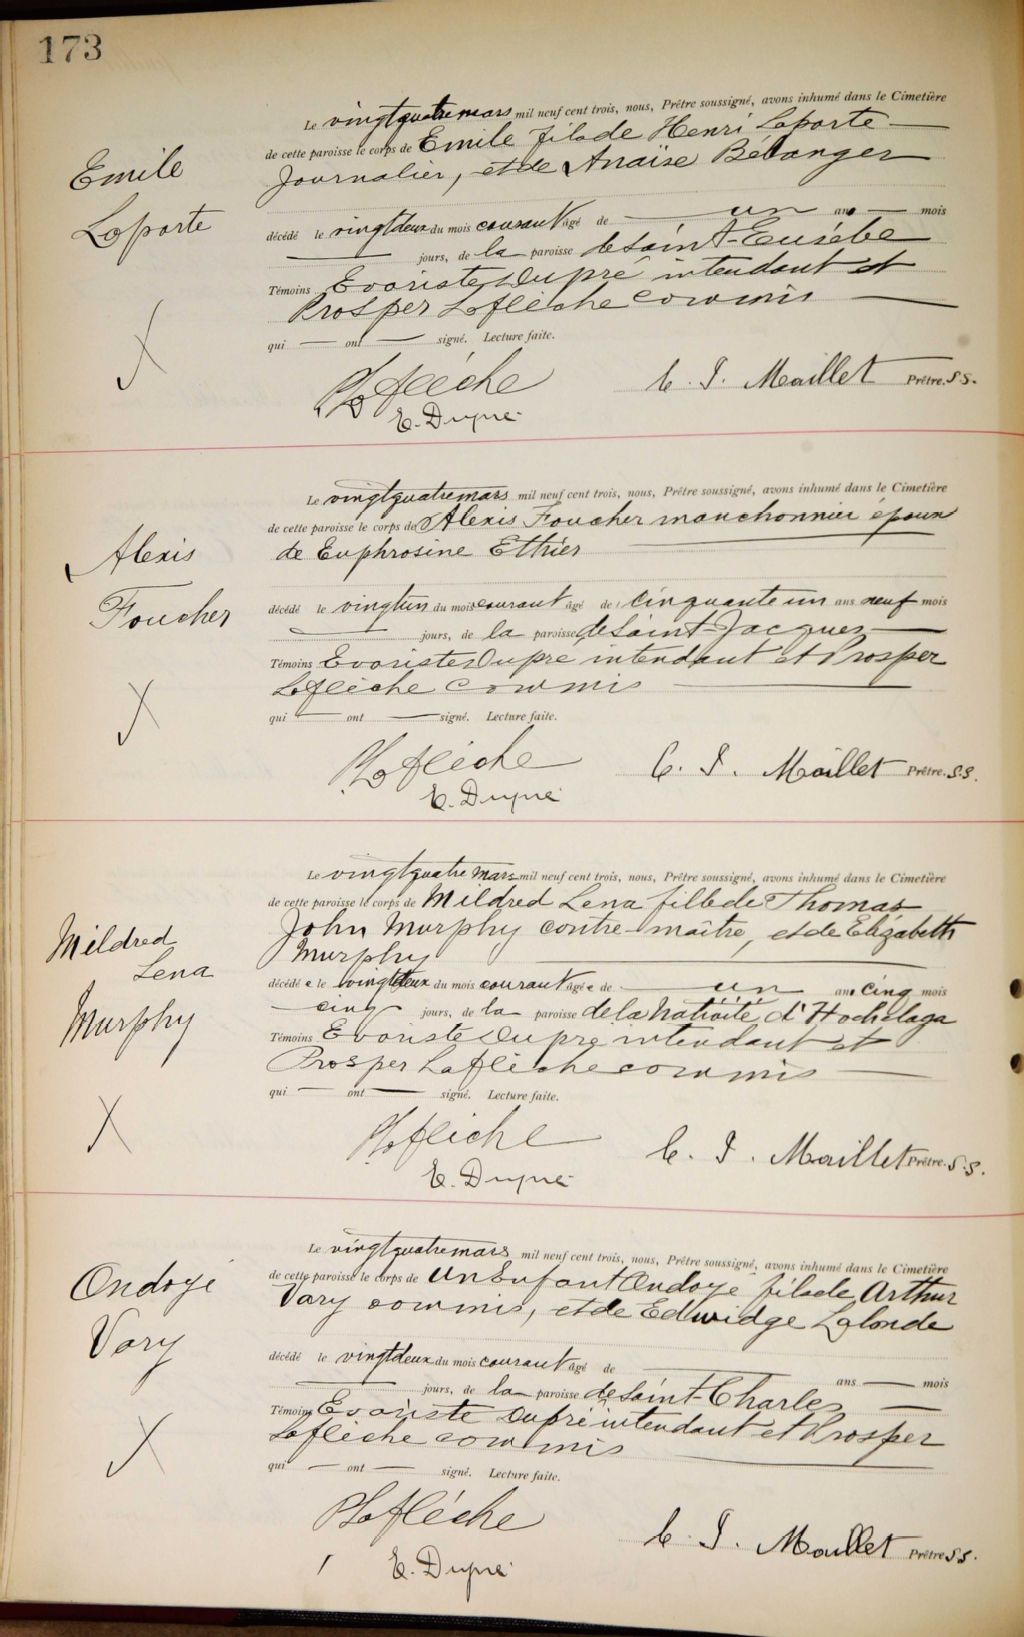 173
Emile
Laporte
Le vingtquatre mars mil neuf cent trois, nous, Prêtre soussigné, avons inhumé dans le Cimetière
de cette paroisse le corps de Emile fils de Henri Laporte
Journalier, et de Anaïse Bélanger
décédé le vingtdeux du mois courant âgé de un an mois
jours, de la paroisse de Saint-Eusèbe
Témoins Evariste Dupré intendant et
Prosper Laflèche commis
qui ont signé. Lecture faite.
PLaflèche
E. Dupré
C. J. Maillet Prêtre. S.S.
Alexis
Foucher
Le vingtquatre mars mil neuf cent trois, nous, Prêtre soussigné, avons inhumé dans le Cimetière
de cette paroisse le corps de Alexis Foucher manchonnier époux
de Euphrosine Ethier
décédé le vingtun du mois courant âgé de cinquante un ans neuf mois
jours, de la paroisse de Saint-Jacques
Témoins Evariste Dupré intendant et Prosper
Laflèche commis
qui ont signé. Lecture faite.
PLaflèche
E. Dupré
C. J. Maillet Prêtre. S.S.
Mildred
Lena
Murphy
Le vingtquatre mars mil neuf cent trois, nous, Prêtre soussigné, avons inhumé dans le Cimetière
de cette paroisse le corps de Mildred Lena fille de Thomas
John Murphy contre-maître, et de Elizabeth
Murphy
décédée le vingtdeux du mois courant âgée de un an cinq mois
cinq jours, de la paroisse de la Nativité d'Hochelaga
Témoins Evariste Dupré intendant et
Prosper Laflèche commis
qui ont signé. Lecture faite.
PLaflèche
E. Dupré
C. J. Maillet Prêtre. S.S.
Ondoyé
Vary
Le vingtquatre mars mil neuf cent trois, nous, Prêtre soussigné, avons inhumé dans le Cimetière
de cette paroisse le corps de un Enfant Ondoyé fils de Arthur
Vary commis, et de Edwidge Lalonde
décédé le vingtdeux du mois courant âgé de ans mois
jours, de la paroisse de Saint-Charles
Témoins Evariste Dupré intendant et Prosper
Laflèche commis
qui ont signé. Lecture faite.
PLaflèche
E. Dupré
C. J. Maillet Prêtre S.S.